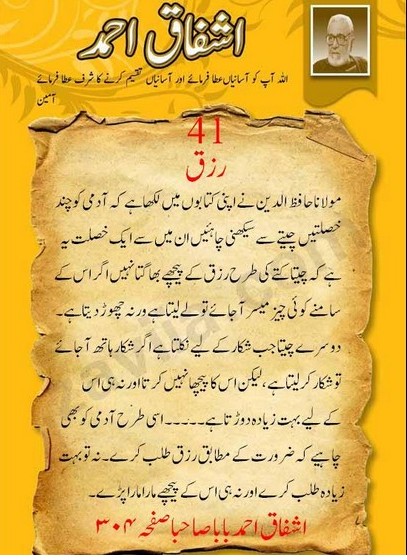 اشفاق احمد
اللہ آپ کو آسانیاں عطا فرمائے اور آسانیاں تقسیم کرنے کا شرف عطا فرمائے
آمین
41
رزق
مولانا حافظ الدین نے اپنی کتابوں میں لکھا ہے کہ آدمی کو چند
خصلتیں چیتے سے سیکھنی چاہئیں ان میں سے ایک خصلت یہ
ہے کہ چیتا کتے کی طرح رزق کے پیچھے بھاگتا نہیں اگر اس کے
سامنے کوئی چیز میسر آجائے تو لے لیتا ہے ورنہ چھوڑ دیتا ہے۔
دوسرے چیتا جب شکار کے لیے نکلتا ہے اگر شکار ہاتھ آجائے
تو شکار کر لیتا ہے، لیکن اس کا پیچھا نہیں کرتا اور نہ ہی اس
کے لیے بہت زیادہ دوڑتا ہے۔۔۔۔۔اسی طرح آدمی کو بھی
چاہیے کہ ضرورت کے مطابق رزق طلب کرے۔ نہ تو بہت
زیادہ طلب کرے اور نہ ہی اس کے پیچھے مارا مارا پڑے۔
اشفاق احمد بابا صاحبا صفحہ ۳۰۴